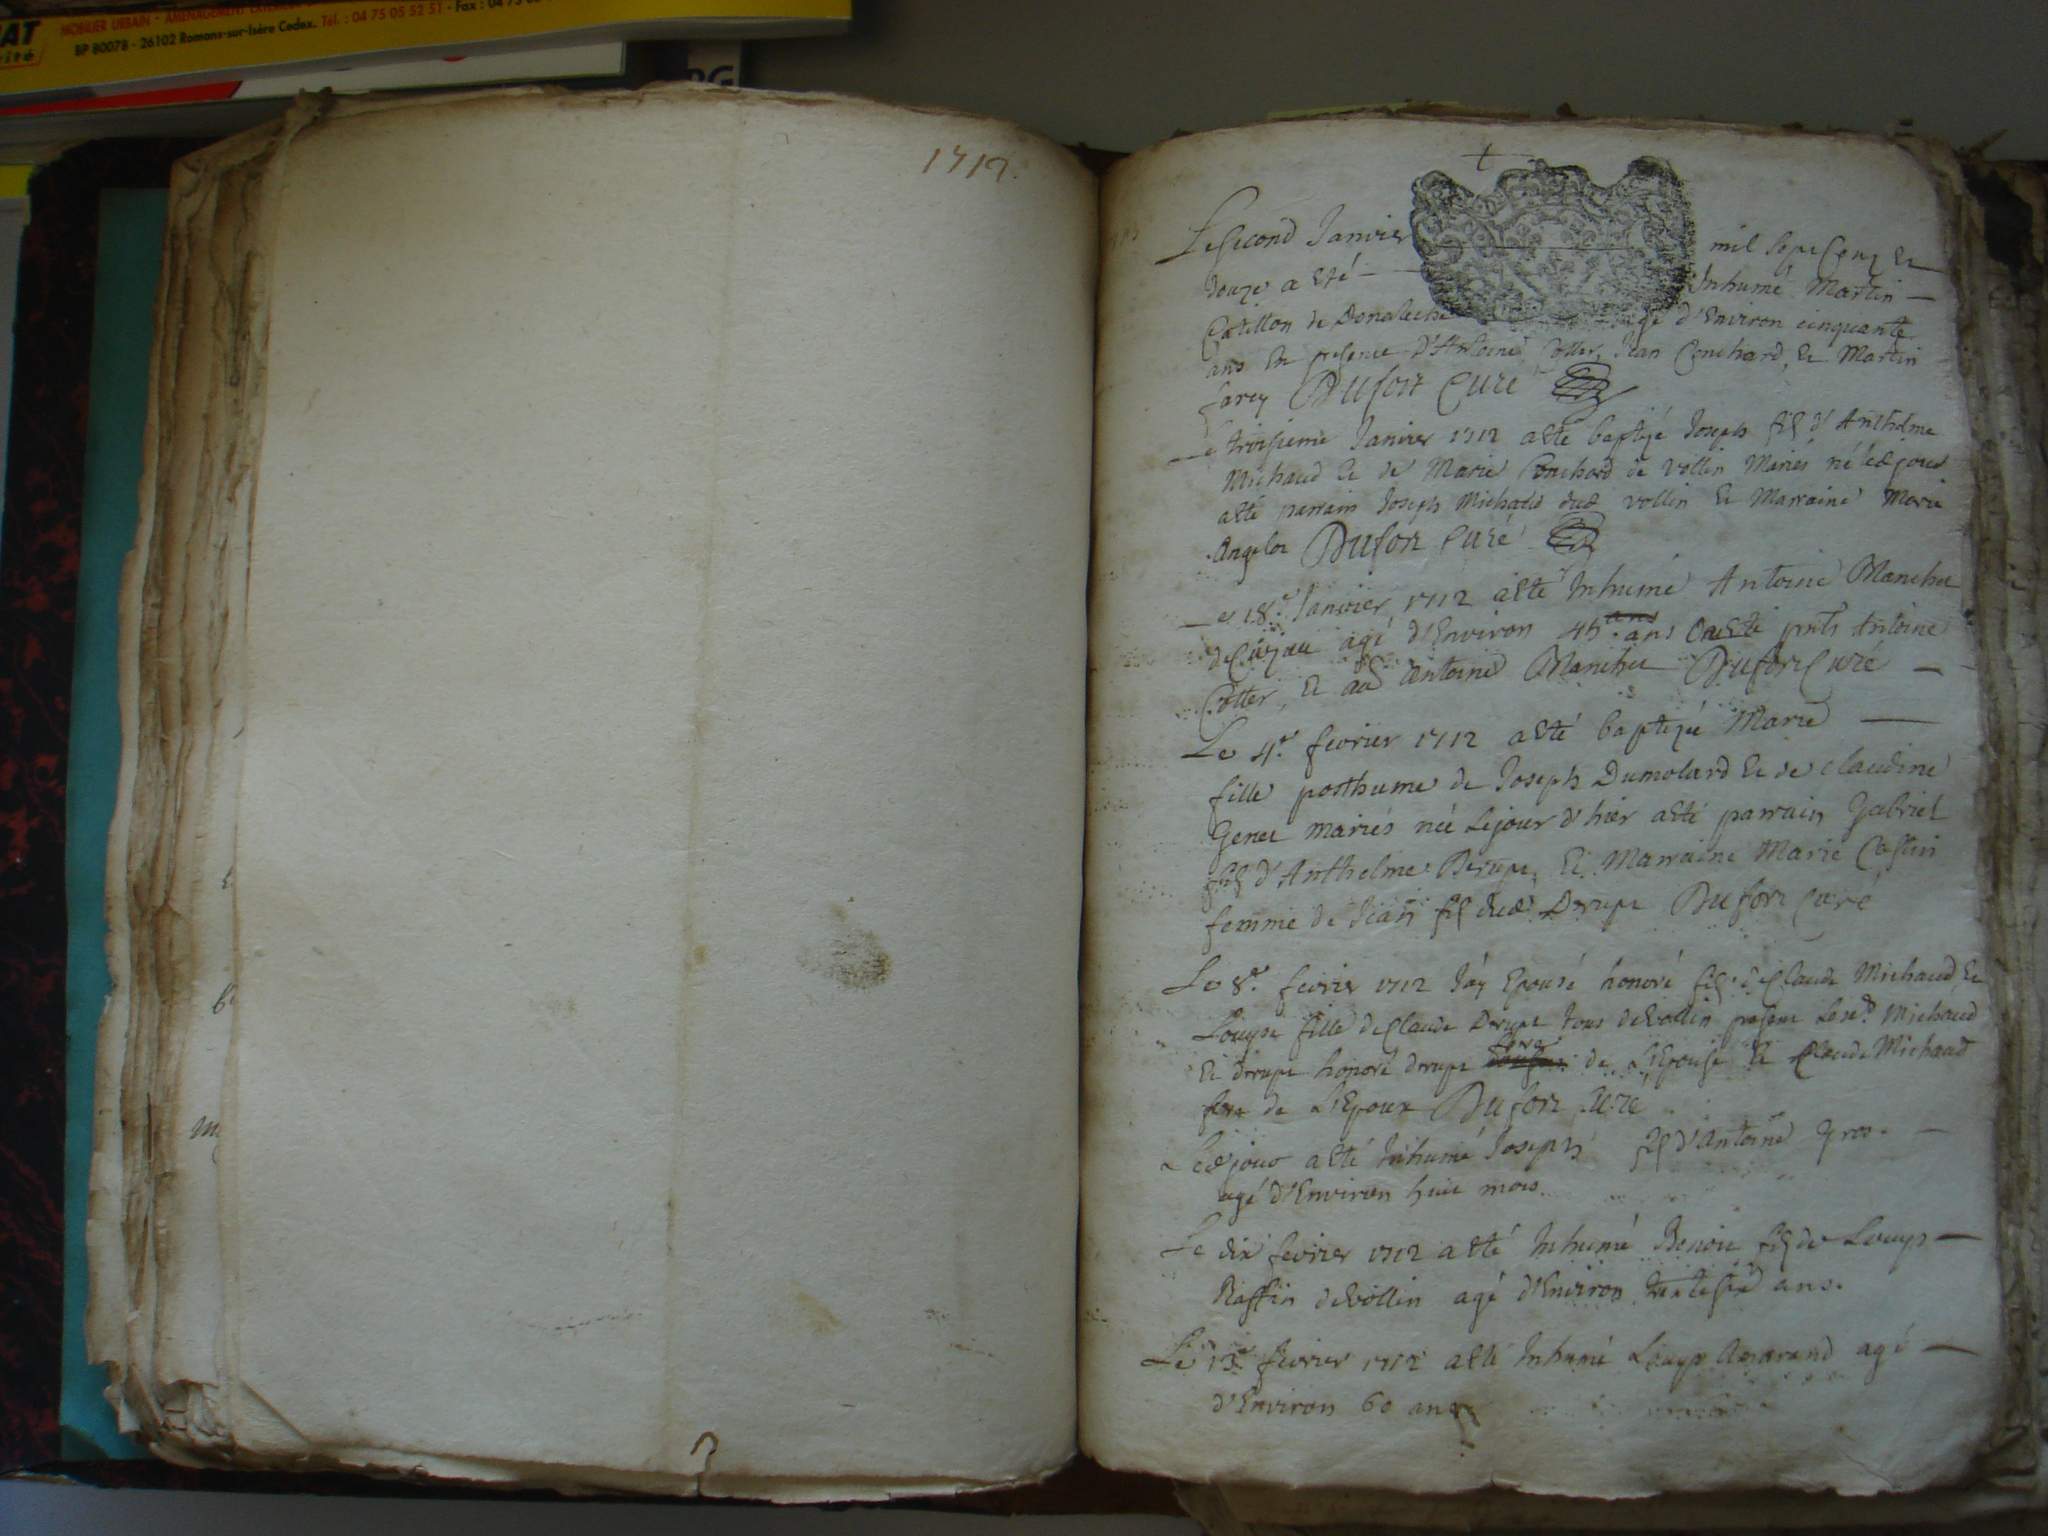 MOBILIER URBAIN - AMENAGEMENT
BP 80078 - 26102 Romans-sur-Isère Cedex. Tél. : 04 75 05 52 51 - Fax : 04 75
1712.
Le second Janvier mil sept cent et
douze a esté inhumé Martin
Catillon de âgé d'Environ cinquante
ans en presence d'Antoine Cotter, Jean Conchard, et Martin
Dufort Curé
Le troisieme Janvier 1712 a esté baptizé Joseph fils d'Anthelme
Michaud et de Marie Conchard de Vollin Mariés né led jour
a esté parrain Joseph Michaud dud Vollin et Marraine Marie
Dufort Curé
Le 18e Janvier 1712 a esté Inhumé Antoine
agé d'Environ 45 ans ont esté pnts Antoine
Cotter, et Antoine Dufort Curé
Le 4e fevrier 1712 a esté baptizée Marie
fille posthume de Joseph Dumolard et de Claudine
Genet mariés née le jour d'hier a esté parrain Gabriel
fils d'Anthelme Derupt, et Marraine Marie
femme de Jean fils dud Derupt Dufort Curé
Le 8e fevrier 1712 J'ay Epousé honoré fils de Claude Michaud et
Louyse fille de Claude Derupt tous de Vollin present Michaud
et derupt honoré derupt frere de L'Epouse et Claude Michaud
frere de L'Epoux Dufort Curé
Led jour a esté Inhumé Joseph fils d'Antoine Gros
agé d'Environ huit mois
Le dix fevrier 1712 a esté Inhumé Benoit fils de Louys
Raffin de Vollin agé d'Environ ans.
Le 13e fevrier 1712 a esté Inhumé Louys agé
d'Environ 60 ans